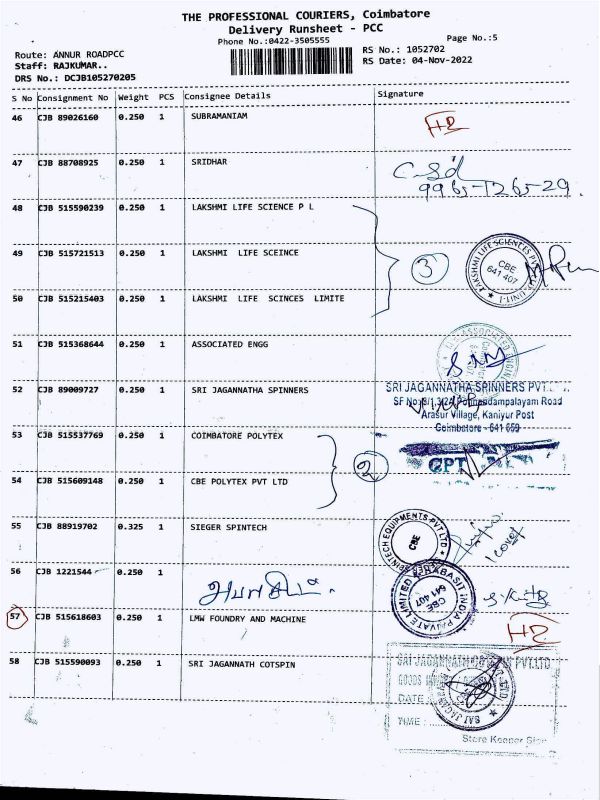 THE PROFESSIONAL COURIERS, Coimbatore
Delivery Runsheet - PCC
Phone No.:0422-3505555
Page No.:5
Route: ANNUR ROADPCC
Staff: RAJKUMAR..
DRS No.: DCJB105270205
RS No.: 1052702
RS Date: 04-Nov-2022
S No Consignment No Weight PCS Consignee Details Signature
46 CJB 89026160 0.250 1 SUBRAMANIAM
47 CJB 88708925 0.250 1 SRIDHAR
9965-1265-29.
48 CJB 515590239 0.250 1 LAKSHMI LIFE SCIENCE P L
49 CJB 515721513 0.250 1 LAKSHMI LIFE SCEINCE
3
LAKSHMI LIFE SCIENCES PVT
CBE
641 407
50 CJB 515215403 0.250 1 LAKSHMI LIFE SCINCES LIMITE
51 CJB 515368644 0.250 1 ASSOCIATED ENGG
52 CJB 89009727 0.250 1 SRI JAGANNATHA SPINNERS
SRI JAGANNATHA SPINNERS PVT
Arasur Village, Kaniyur Post
Coimbatore - 641 659
53 CJB 515537769 0.250 1 COIMBATORE POLYTEX
CPT
2
54 CJB 515609148 0.250 1 CBE POLYTEX PVT LTD
55 CJB 88919702 0.325 1 SIEGER SPINTECH
SPINTECH EQUIPMENTS PVT LTD
CBE
56 CJB 1221544 0.250 1
CBE
641 407
57 CJB 515618603 0.250 1 LMW FOUNDRY AND MACHINE
58 CJB 515590093 0.250 1 SRI JAGANNATH COTSPIN
SAI JAGANNATH
PVT.LTD
DATE
TIME :
Store Keeper Sign